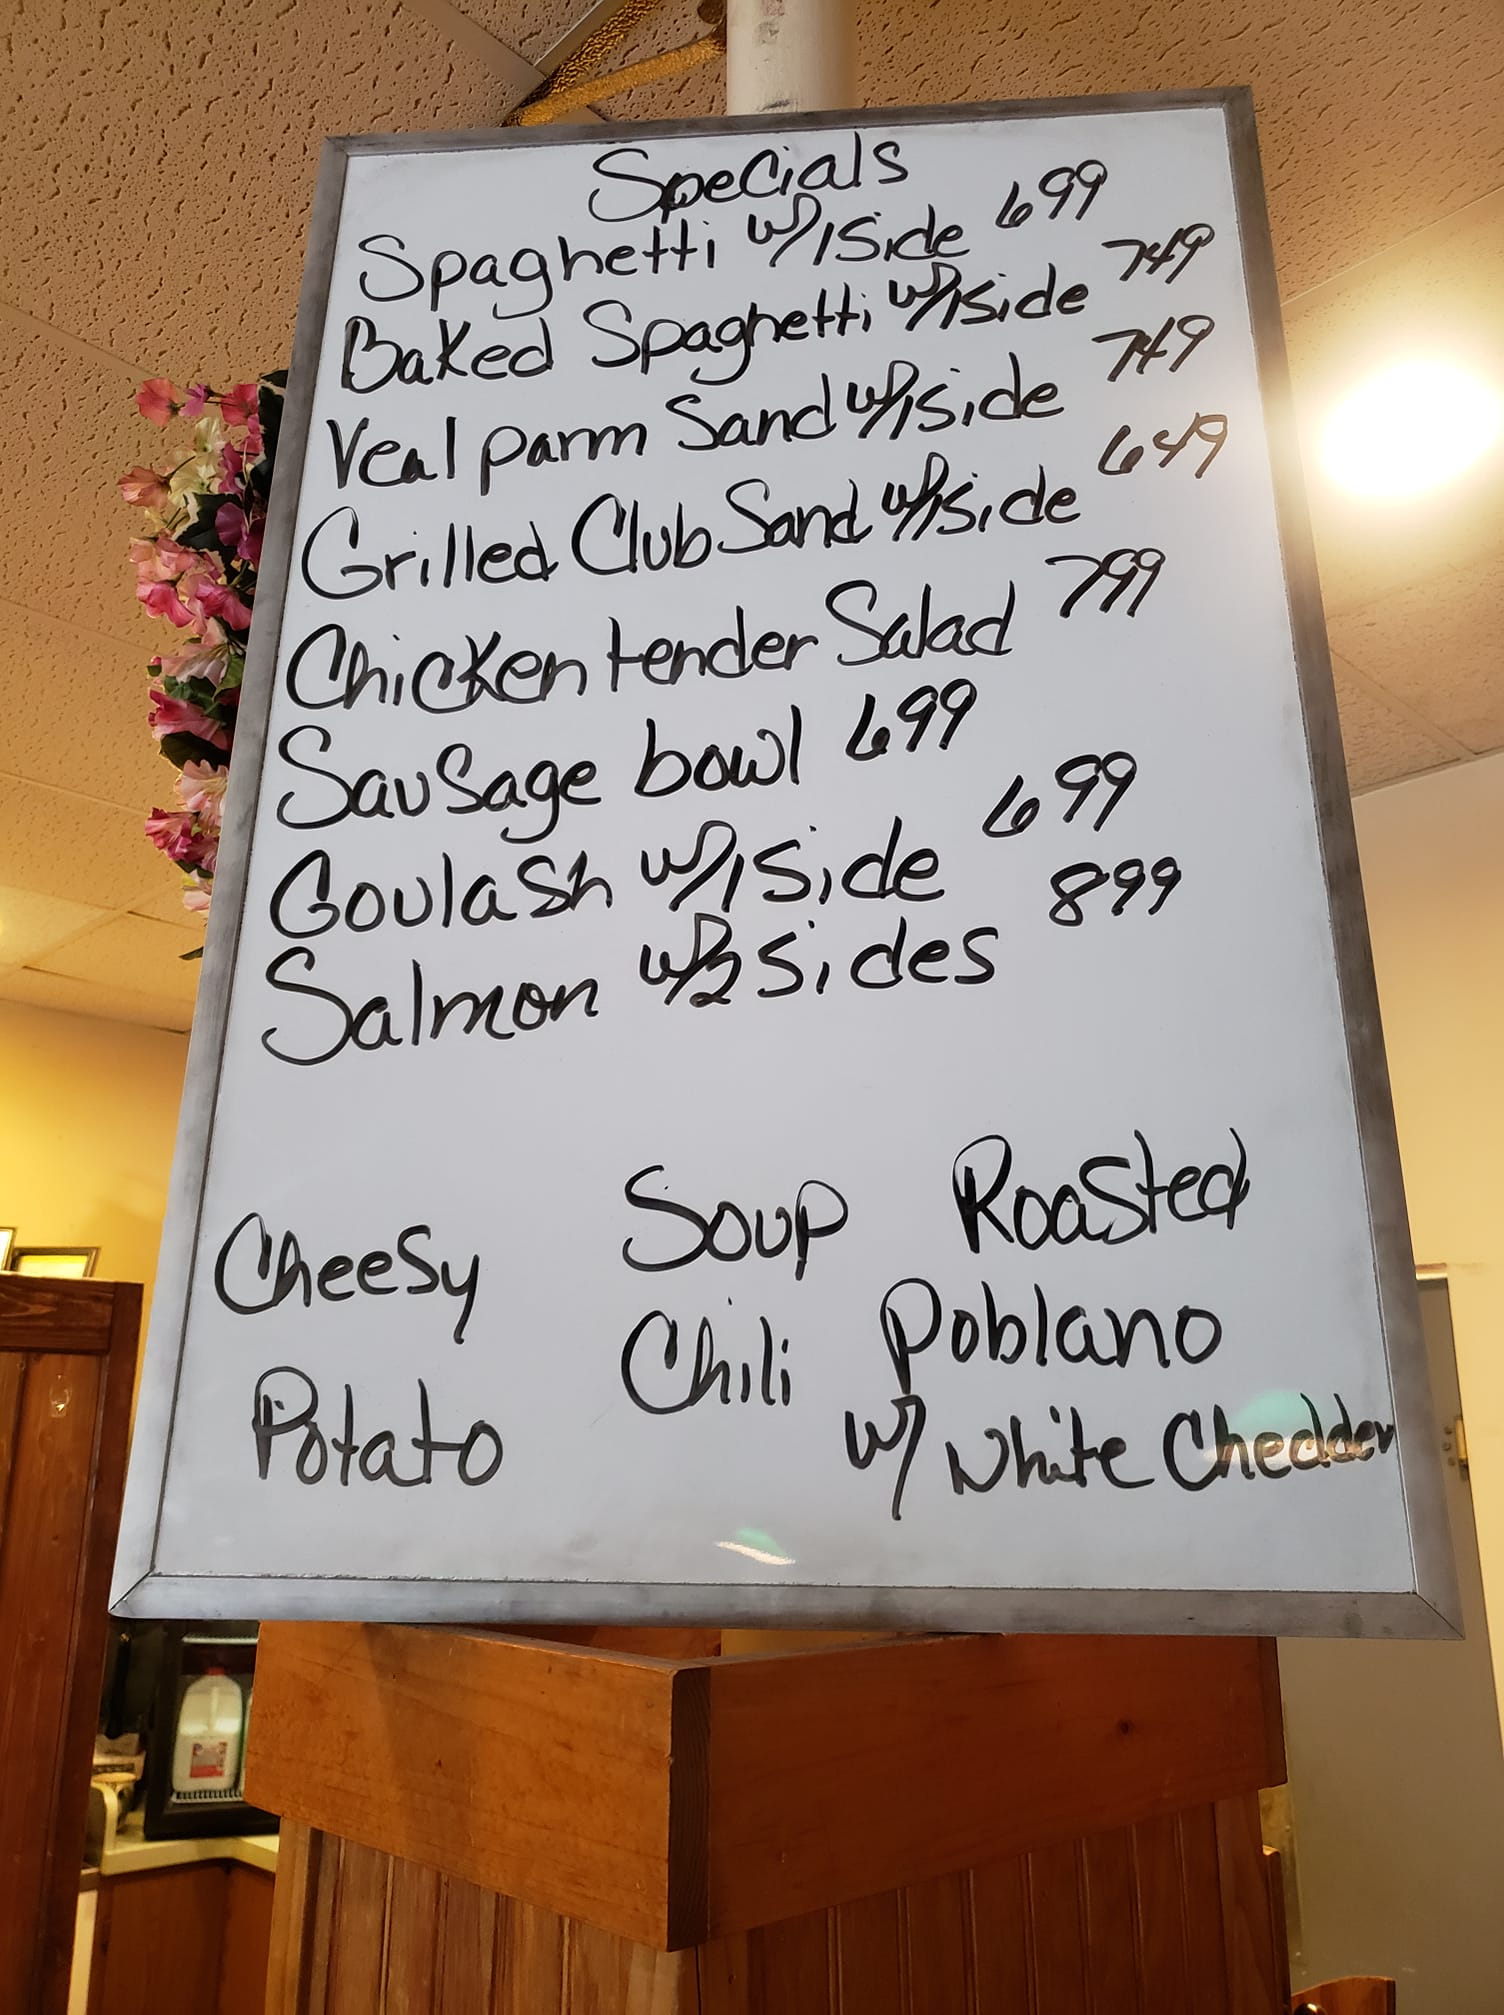 Specials
Spaghetti w/1Side 699
Baked Spaghetti w/1side 749
Veal parm Sand w/1side 749
Grilled Club Sand w/1side 649
Chicken tender Salad 799
Sausage bowl 699
Goulash w/1side 699
Salmon w/2 sides 899
Soup
Cheesy
Potato
Chili
Roasted
Poblano
w/ White Chedder